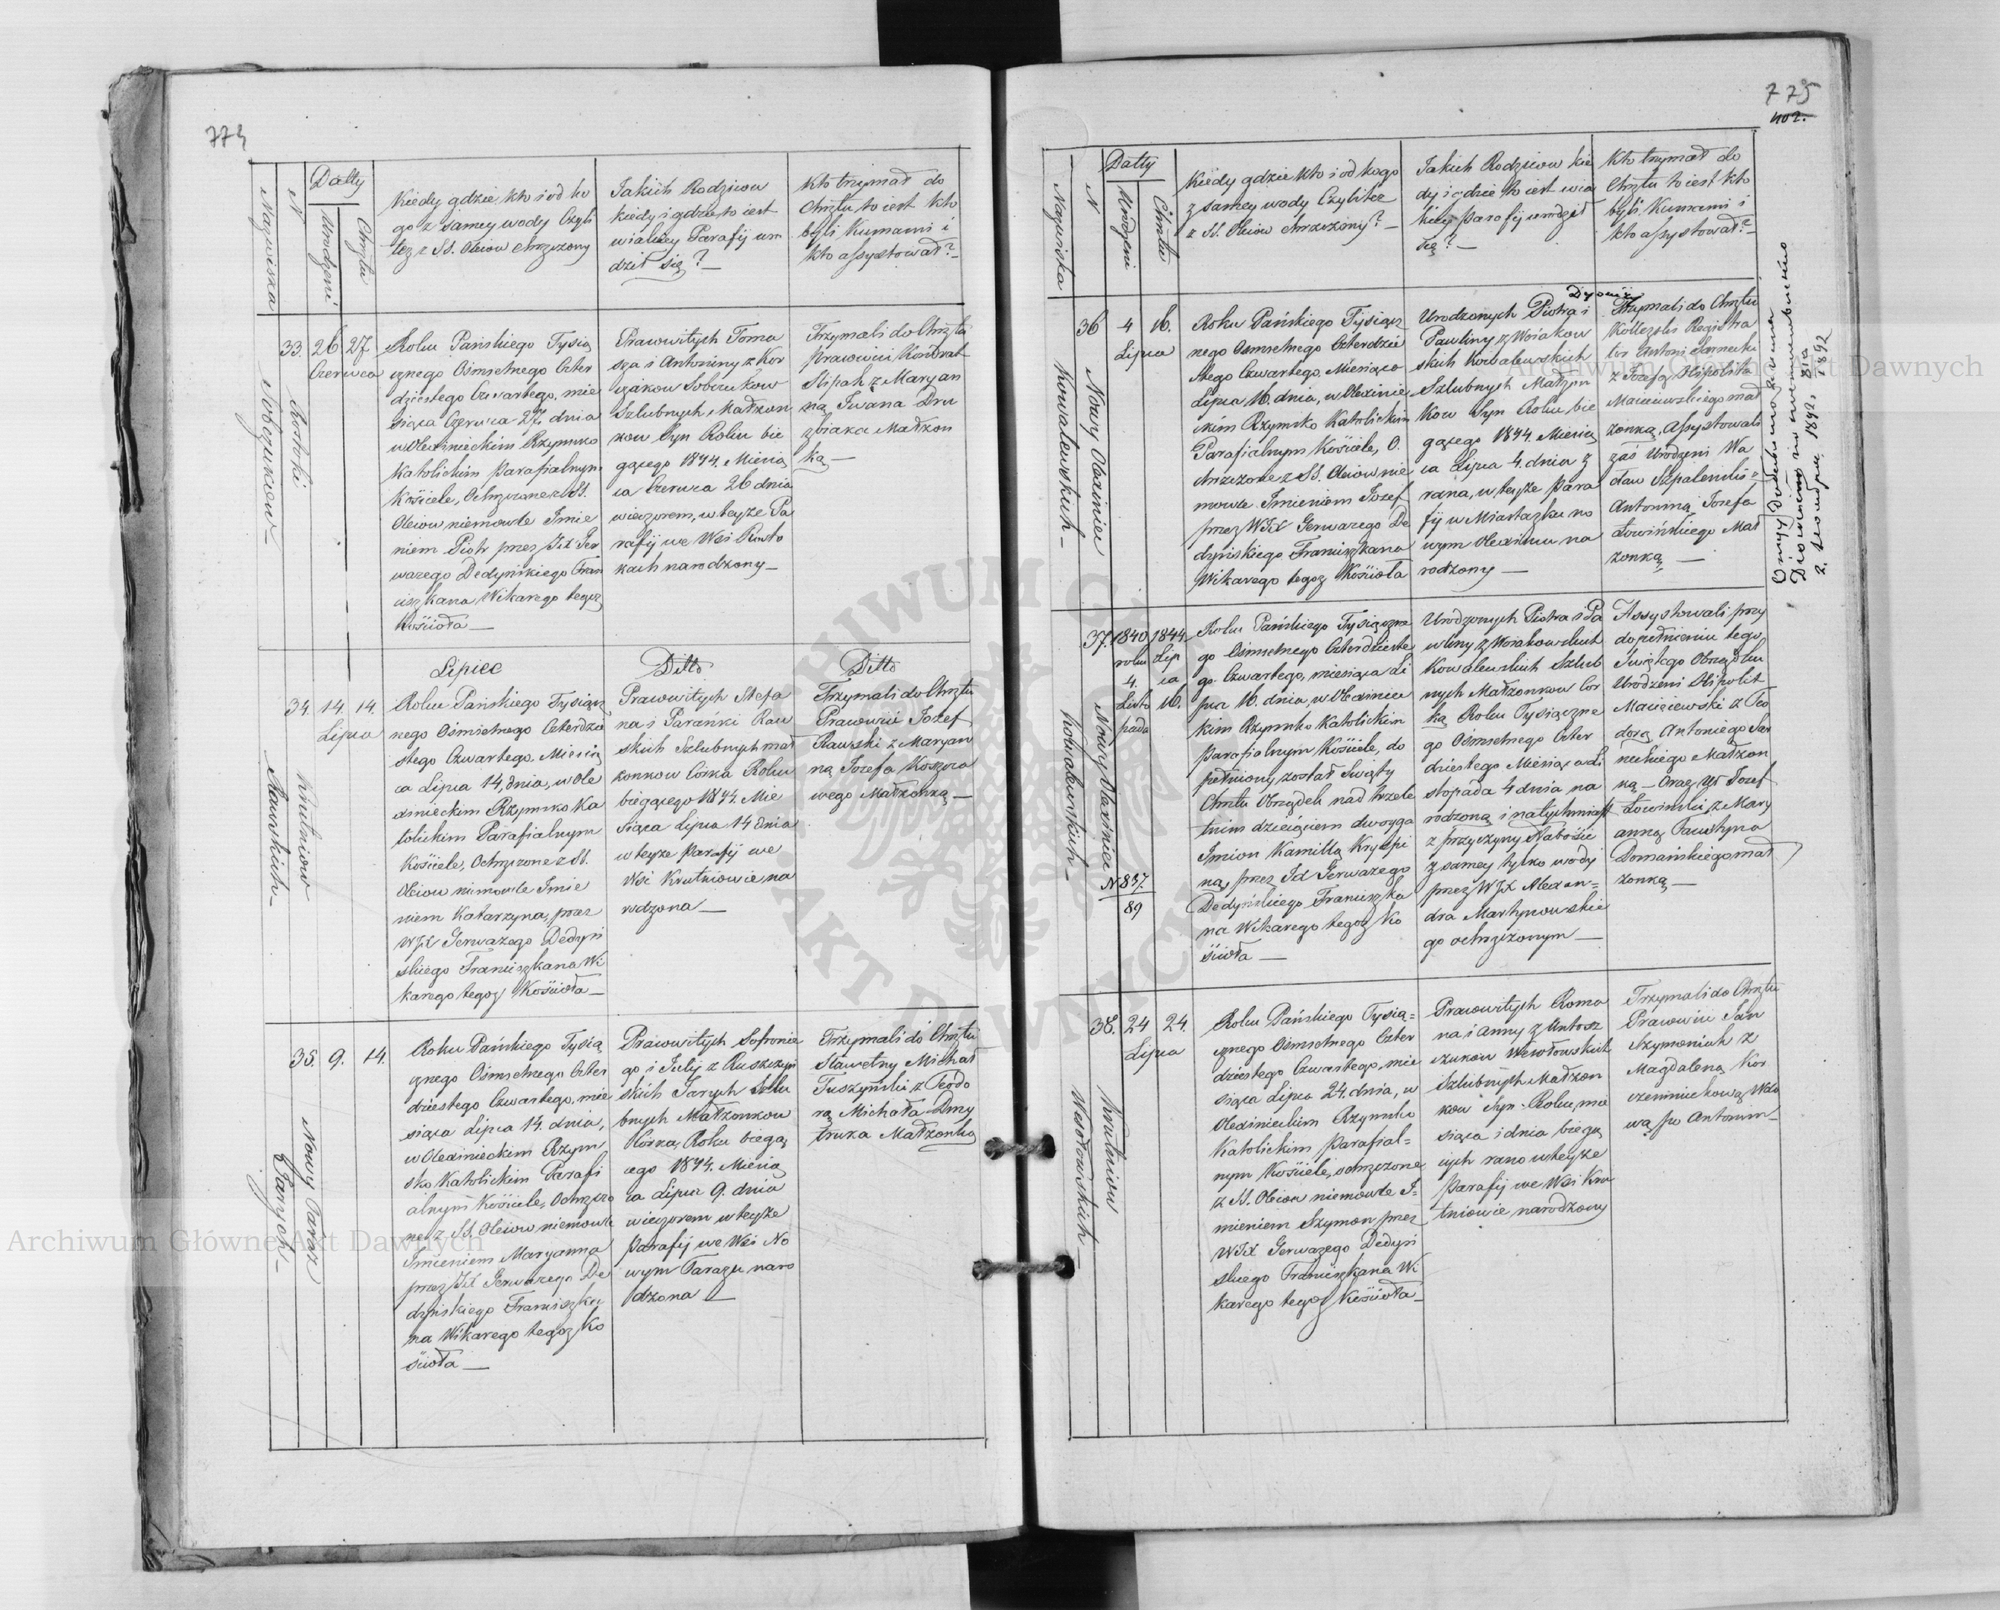 774
Nazwiska
N
Datty
Urodzeni
Chrztu
Kiedy gdzie kto i od ko
go z samey wody Czyli
też z SS. Oleiow chrzczony
Jakich Rodziców
kiedy i gdzie to iest
w iakiey Parafij uro
dził się? —
Kto trzymał do
Chrztu to iest kto
byli Kumami i
kto assystował? —
33.
26
27
Czerwca
Sobczukow —
Roku Pańskiego Tysią
cznego Ośmsetnego Czter
dziestego Czwartego, mie
siąca Czerwca 27. dnia
w Olexinieckim Rzymsko
Katolickim Parafialnym
Kościele, Ochrzczone z SS.
Oleiow niemowle Imie
niem Piotr przez JX Ger
wazego Dedyńskiego Fran
ciszkana Wikarego tegoż
Kościoła —
Prawowitych Toma
sza i Antoniny z Kor
czakow Sobczukow
Szlubnych Małżon
kow Syn Roku bie
gącego 1844. Miesią
ca Czerwca 26 dnia
wieczorem, w teyże Pa
rafij we Wsi
narodzony —
Trzymali do Chrztu
Prawowici Kondrat
Slipak z Maryan
ną Iwana Dru
zjaka Małżon
ką —
Lipiec
Ditto
Ditto
34.
14.
14.
Lipca
Krutniow
Sławskich —
Roku Pańskiego Tysiącz
nego Ośmsetnego Czterdzie
stego Czwartego, Miesią
ca Lipca 14, dnia, w Ole
xinieckim Rzymsko Ka
tolickim Parafialnym
Kościele, Ochrzczone z SS.
Oleiow niemowle Imie
niem Katarzyna, przez
WJX Gerwazego Dedyń
skiego Franciszkana Wi
karego tegoż Kościoła —
Prawowitych Stefa
na i Parański Raw
skich Szlubnych mał
żonkow Córka Roku
biegącego 1844. Mie
siąca Lipca 14 dnia
w teyże Parafij we
Wsi Krutniowie na
rodzona —
Trzymali do Chrztu
Prawowici Jozef
Sławski z Maryan
ną Jozefa Koszcza
wego Małżonką —
35.
9.
14.
Nowy Taraz
Jarych —
Roku Pańskiego Tysią
cznego Ośmsetnego Czter
dziestego Czwartego, mie
siąca Lipca 14. dnia,
w Olexinieckim Rzym
sko Katolickim Parafi
alnym Kościele, Ochrzczo
ne z SS. Oleiow niemowle
Imieniem Maryanna
przez JX Gerwazego De
dyńskiego Franciszka
na Wikarego tegoż Ko
ścioła —
Prawowitych Sofronie
go i Julij z Ruszczyń
skich Jarych Szlu
bnych Małżonkow
Córka, Roku biegą
cego 1844. Miesią
ca Lipca 9. dnia
wieczorem w teyże
Parafij we Wsi No
wym Tarazu naro
dzona —
Trzymali do Chrztu
Sławetny Michał
Tuszyński z Teodo
rą Michała Dmy
truka Małżonką
775
402.
Nazwiska
N
Datty
Urodzeni
Chrztu
Kiedy gdzie kto i od kogo
z samey wody Czyli też
z SS. Oleiow chrzczony? —
Jakich Rodziców kie
dy i gdzie to iest w ia
kiey Parafij urodził
się? —
Kto trzymał do
Chrztu to iest kto
byli Kumami i
kto assystował? —
36
4
16.
Lipca
Nowy Olexiniec
Kowalewskich —
Roku Pańskiego Tysiącz
nego Ośmsetnego Czterdzie
stego Czwartego, Miesiąca
Lipca 16. dnia, w Olexinie
ckim Rzymsko Katolickim
Parafialnym Kościele, O
chrzczone z SS. Oleiow nie
mowle Imieniem Jozef
przez WJX Gerwazego De
dyńskiego Franciszkana
Wikarego tegoż Kościoła
Urodzonych Piotra i
Pauliny z Wosiakow
skich Kowalewskich
Szlubnych Małżon
kow Syn Roku bie
gącego 1844. Miesią
ca Lipca 4. dnia z
rana, w teyże Para
fij w Miasteczku No
wym Olexińcu na
rodzony —
Trzymali do Chrztu
Kolleżski Registra
tor Antoni Sarnecki
z Jozefą Hipolita
Maciewskiego mał
żonką, Assystowali
zaś Urodzeni Wa
cław Szpalenski
Antoniną Jozefa
Łowińskiego Mał
żonką —
1892
37.
1840
roku
4.
Listo
pada
1844.
Lip
ca
16.
N 837.
89
Kowalewskich —
Roku Pańskiego Tysiączne
go Ośmsetnego Czterdzieste
go Czwartego, miesiąca Li
pca 16. dnia, w Olexiniec
kim Rzymsko Katolickim
Parafialnym Kościele, do
pełniony został Święty
Chrztu Obrządek nad trzele
tnim dziecięciem dwoyga
Imion Kamillą Kryspi
ną, przez JX Gerwazego
Dedyńskiego Franciszka
na Wikarego tegoż Ko
ścioła —
Urodzonych Piotra i Pa
uliny z Wosiakowskich
Kowalewskich Szlub
nych Małżonkow Cor
ką Roku Tysiączne
go Ośmsetnego Czter
dziestego Miesiąca Li
stopada 4 dnia na
rodzoną i natychmiast
z przyczyny słabości
z samey tylko wody
przez WJX Alexan=
dra Martynowskie
go ochrzczonym —
Assystowali przy
dopełnieniu tego
Świętego Obrządku
Urodzeni Hipolit
Maciejewski z Teo
dorą Antoniego Sar
neckiego Małżon
ką — Oraz Ur Jozef
Łowiński z Mary
anną Faustyna
Domańskiego mał
żonką —
38.
24
24.
Lipca
Krutniow
Wesołowskich —
Roku Pańskiego Tysią=
cznego Ośmsetnego Czter
dziestego Czwartego, mie
siąca Lipca 24. dnia, w
Olexinieckim Rzymsko
Katolickim Parafial=
nym Kościele, ochrzczone
z SS. Oleiow niemowle I=
mieniem Szymon przez
WJX Gerwazego Dedyń
skiego Franciszkana Wi
karego tegoż Kościoła —
Prawowitych Roma
na i Anny z Antosz
czukow Wesołowskich
Szlubnych Małżon
kow Syn Roku, mie
siąca i dnia biegą
cych rano w teyże
Parafij we Wsi Kru
tniowie narodzony
Trzymali do Chrztu
Prawowici Jan
Szymaniuk z
Magdaleną Kor
czeminskową Wdo
wą po Antonim —
Archiwum Główne Akt Dawnych
Archiwum Główne Akt Dawnych
ARCHIWUM GŁÓWNE AKT DAWNYCH